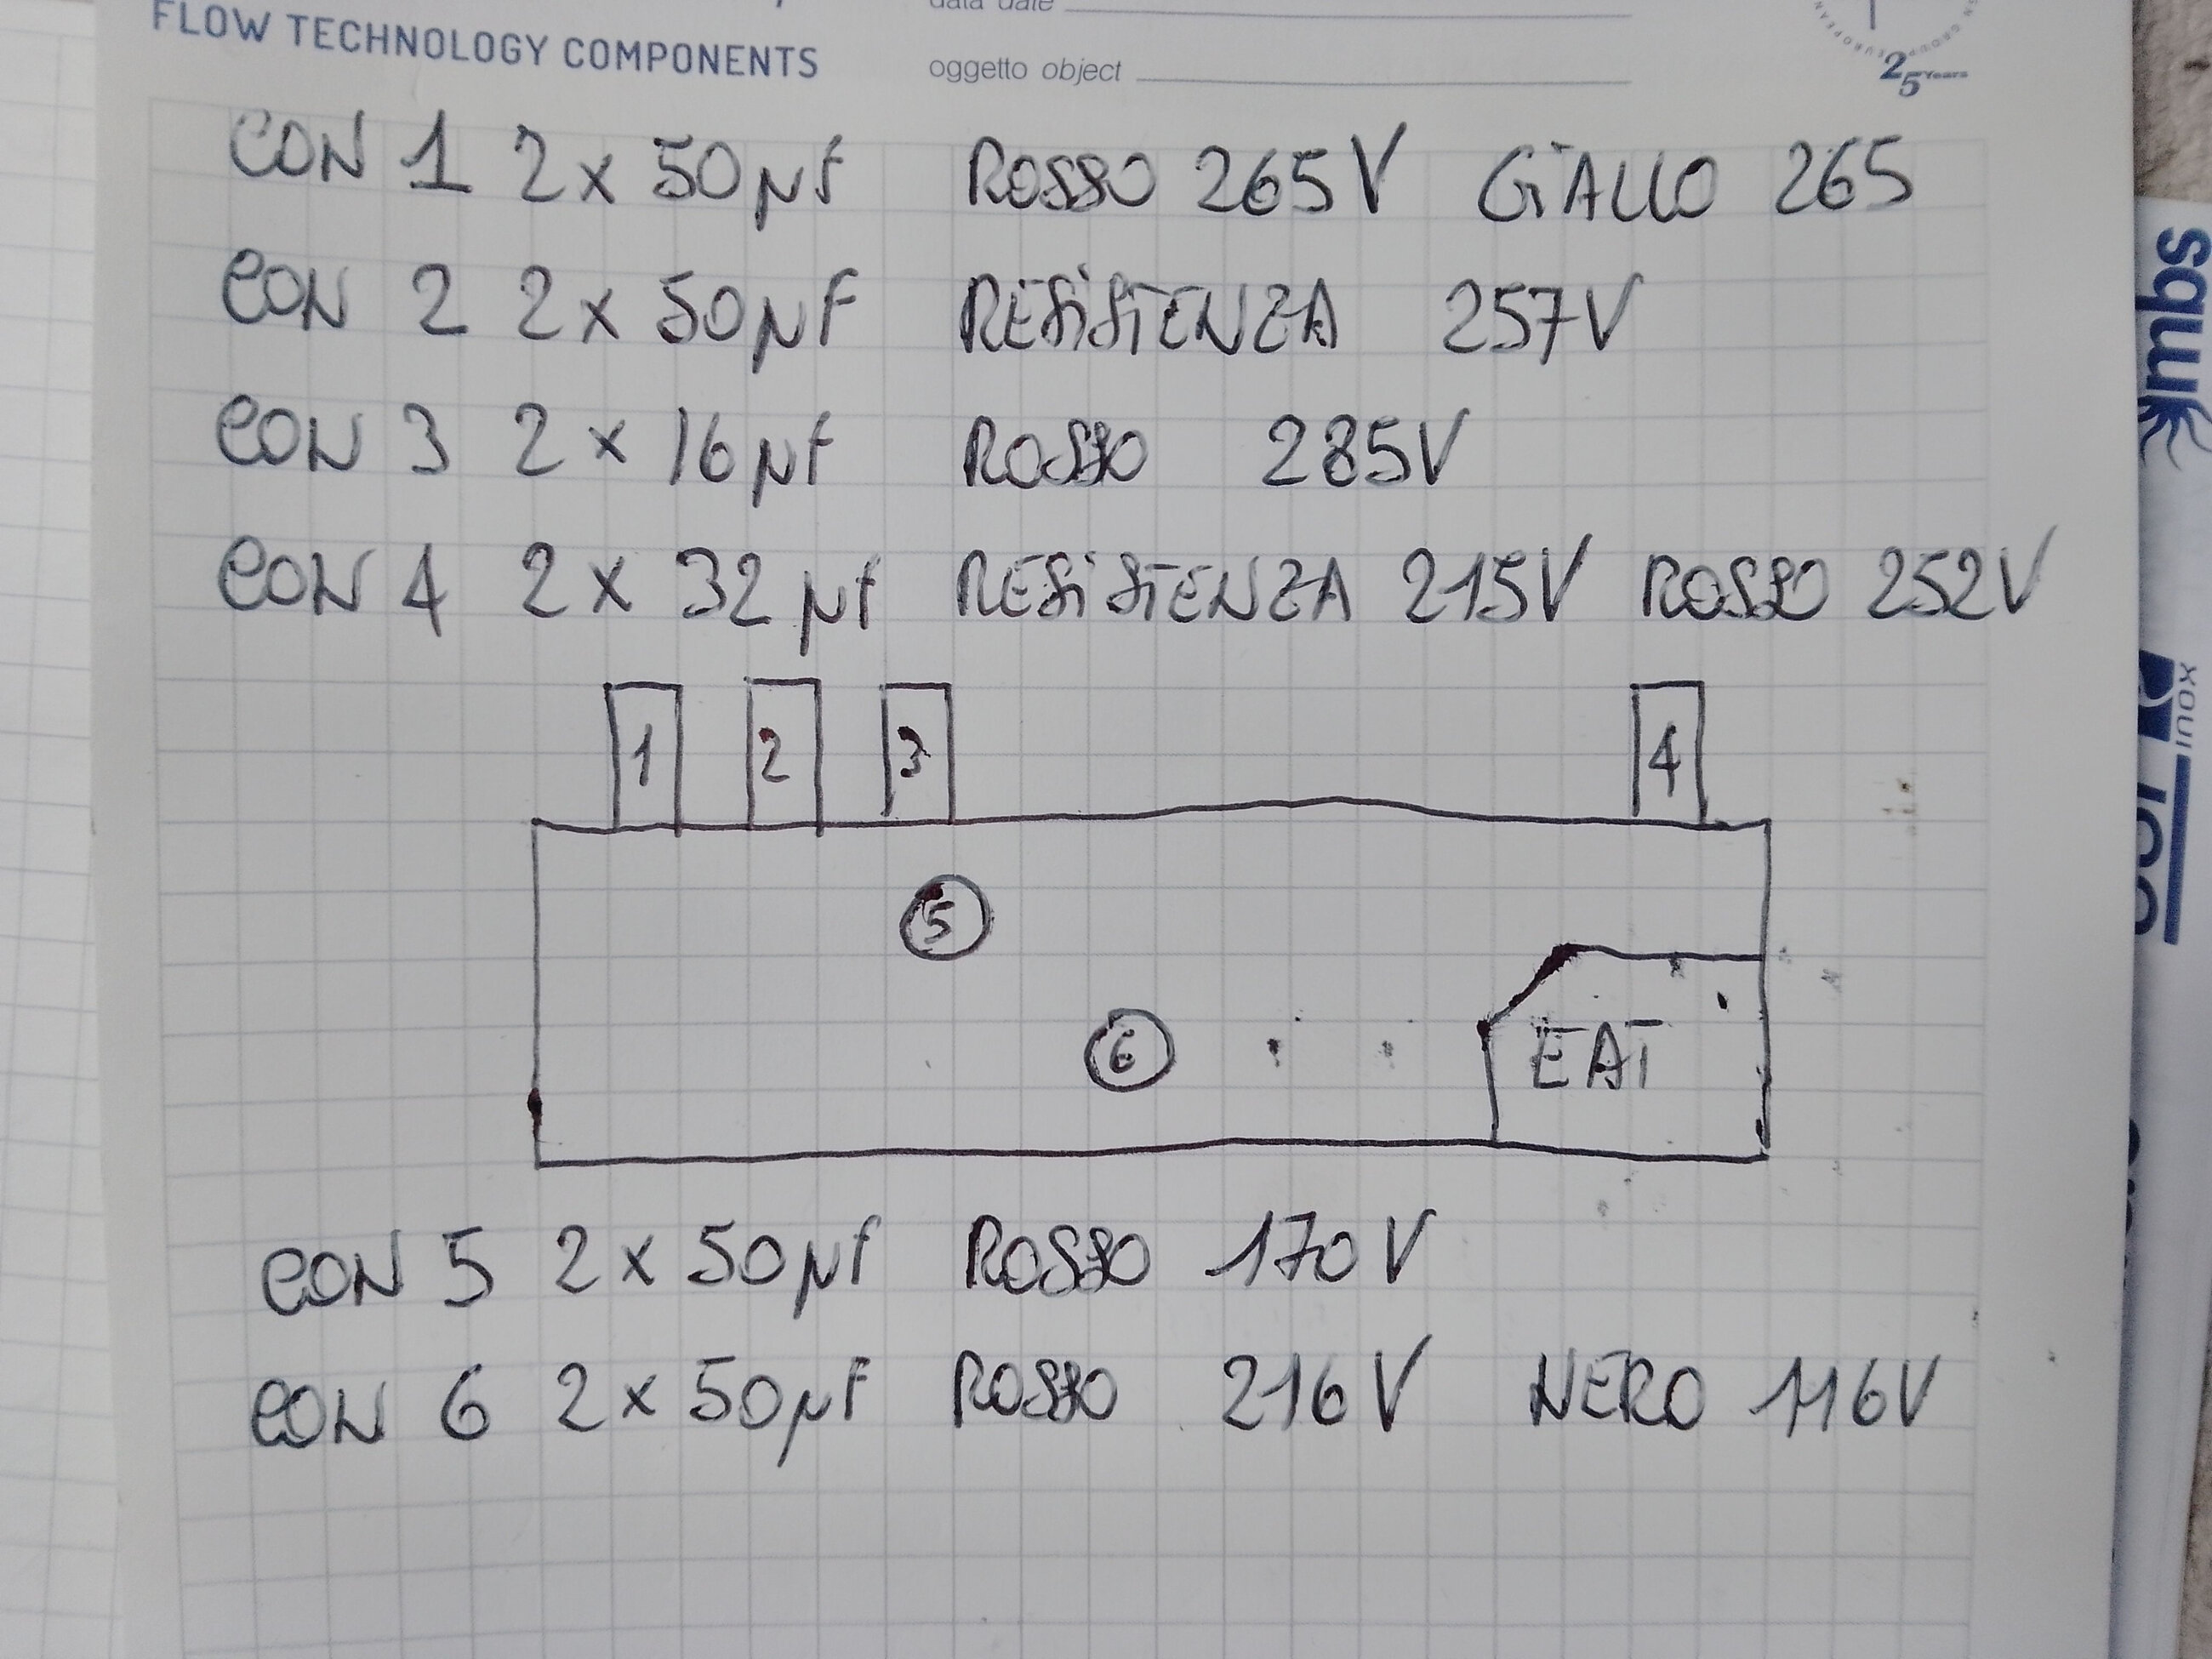 FLOW TECHNOLOGY COMPONENTS
data date
oggetto object
25 Years
CON 1 2 x 50 µf ROSSO 265V GiALLO 265
CON 2 2 x 50 µF RESiSTENZA 257V
CON 3 2 x 16 µf ROSSO 285V
CON 4 2 x 32 µf RESiSTENZA 215V ROSSO 252V
1 2 3 4
5
6
EAT
CON 5 2 x 50 µf ROSSO 170V
CON 6 2 x 50 µF ROSSO 216V NERO 116V
mbs
inox